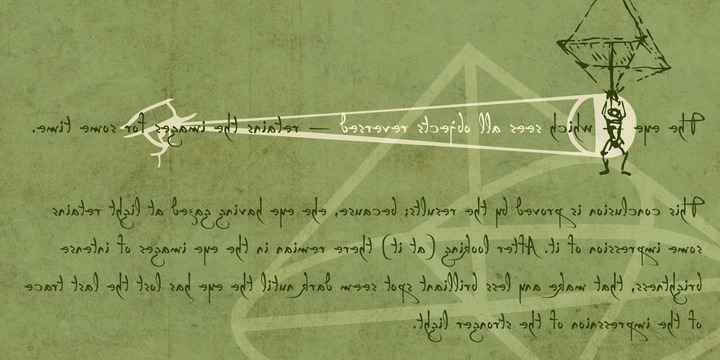 The eye which sees all objects reversed — retains the images for some time.
This conclusion is proved by the results; because, the eye having gazed at light retains
some impression of it. After looking (at it) there remain in the eye images of intense
brightness, that make any less brilliant spot seem dark until the eye has lost the last trace
of the impression of the stronger light.